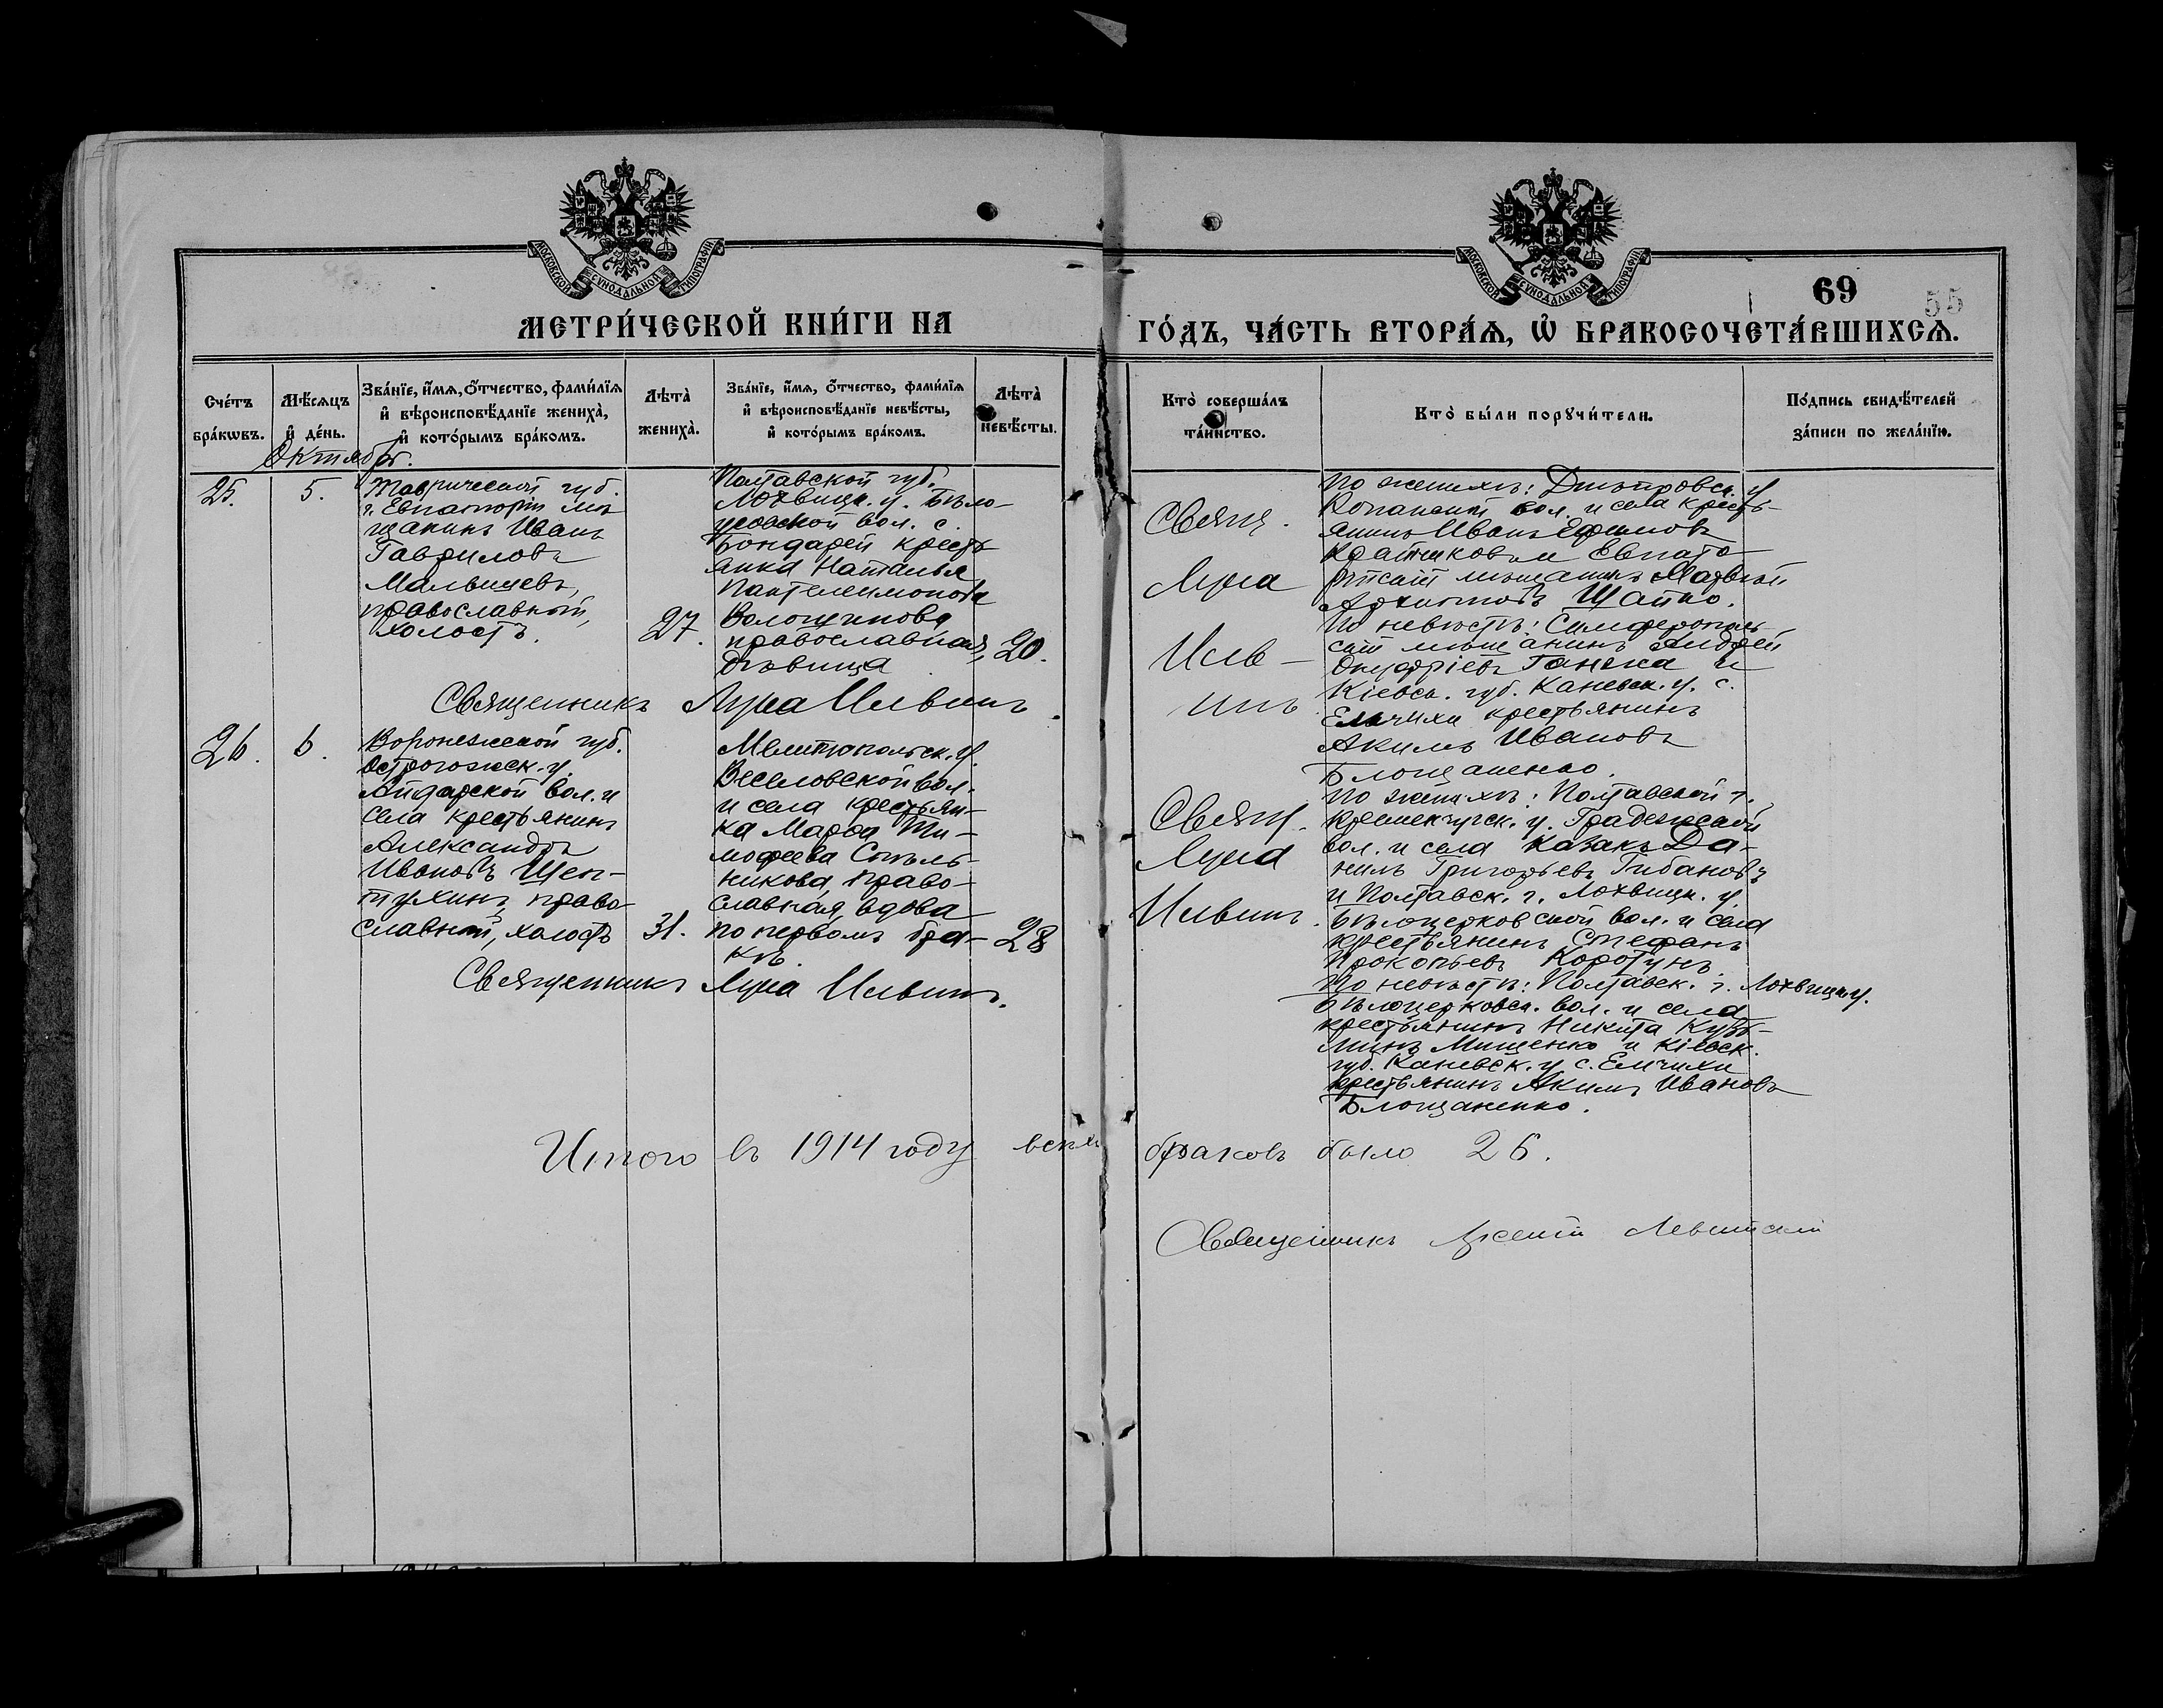 МОСКОВСКОЙ СУНОДАЛЬНОЙ ТИПОГРАФІИ
МОСКОВСКОЙ СУНОДАЛЬНОЙ ТИПОГРАФІИ
69
55
МЕТРИ́ЧЕСКОЙ КНИ́ГИ НА
ГО́ДЪ, ЧА́СТЬ ВТОРА́Ѧ, Ѡ҆ БРАКОСОЧЕТА́ВШИХСѦ.
Сче́тъ
бра́кѡвъ.
Мѣ́сѧцъ
и҆ де́нь.
Зва́нїе, и҆́мѧ, ѻ҆́тчество, фами́лїѧ
и҆ вѣроисповѣ́данїе жениха̀,
и҆ кото́рымъ бра́комъ.
Лѣта̀
жениха̀.
Зва́нїе, и҆́мѧ, ѻ҆́тчество, фами́лїѧ
и҆ вѣроисповѣ́данїе невѣ́сты,
и҆ кото́рымъ бра́комъ.
Лѣта̀
невѣ́сты.
Кто̀ соверша́лъ
та́инство.
Кто̀ бы́ли порꙋчи́тели.
По́дпись свидѣ́телей
за́писи по жела́нїю.
Октябрь.
25.
5.
Таврической губ.
г. Евпаторіи мѣ
щанинъ Иванъ
Гавриловъ
Малышевъ,
православный,
холостъ.
27.
Полтавской губ.
Лохвицк. у. Бѣло-
усовской вол. с.
Бондарей кресть
янка Наталья
Пантелеимонова
Волощинова
православная,
дѣвица
20.
Священникъ Лука Ильинъ.
Свящ.
Лука
Иль-
инъ
По женихѣ: Днѣпровск. у
Копанской вол. и села кресть-
янинъ Иванъ Ефимовъ
и Евпато
рійскій мѣщанинъ Матвѣй
Архиповъ Щапко.
По невѣстѣ: Симферополь
скій мѣщанинъ Андрей
Онуфріевъ Ганжа и
Кіевск. губ. Каневск. у. с.
Ельчихи крестьянинъ
Акимъ Ивановъ
Блощаненко.
26.
6.
Воронежской губ.
Острогожск. у.
Айдарской вол. и
села крестьянинъ
Александръ
Ивановъ Шеп-
тухинъ, право-
славный, холостъ
31.
Мелитопольск. у.
Веселовской вол.
и села крестьян-
ка Марѳа Ти-
моѳеева Стѣль-
никова, право-
славная, вдова
по первомъ бра-
кѣ
28
Священникъ Лука Ильинъ.
Свящ.
Лука
Ильинъ.
По женихѣ: Полтавской г.
Кременчугск. у. Градежской
вол. и села казакъ Да-
нилъ Григорьевъ Гибановъ
и Полтавск. г. Лохвицк. у.
Бѣлоцерковской вол. и села
крестьянинъ Стефанъ
Прокопьевъ Коротунъ.
По невѣстѣ: Полтавск. г. Лохвицк. у.
Бѣлоцерковск. вол. и села
крестьянинъ Никита Кузь-
минъ Мищенко и Кіевск.
губ. Каневск. у с. Ельчихи
крестьянинъ Акимъ Ивановъ
Блощаненко.
Итого въ 1914 году всѣхъ браковъ было 26.
Священникъ Левитскій